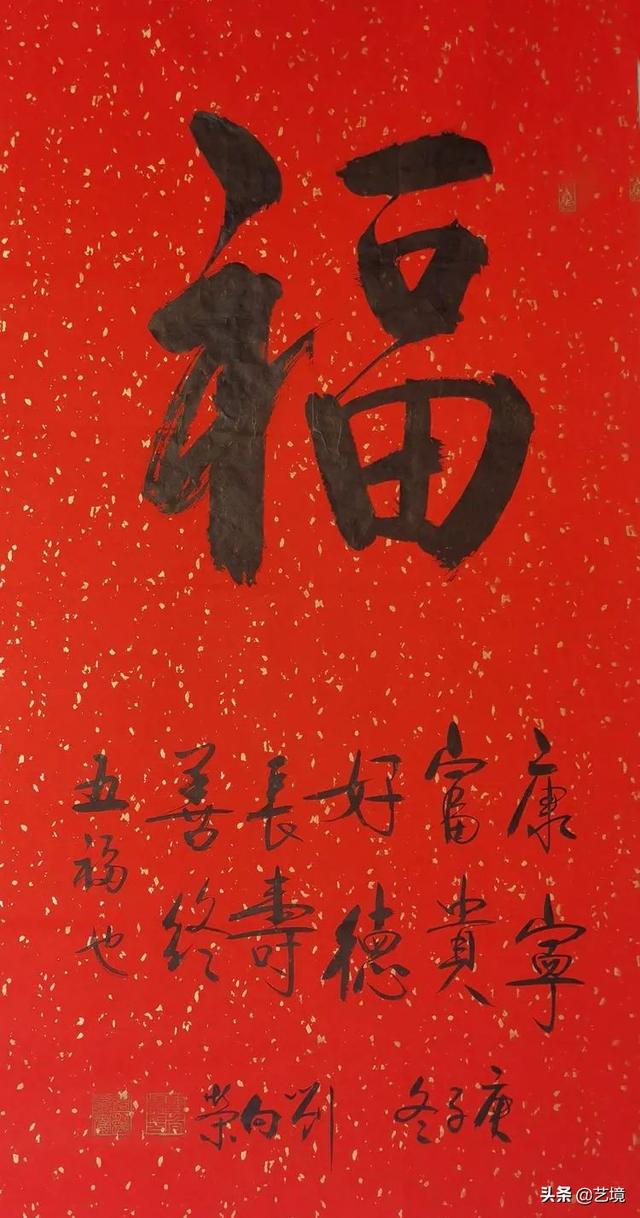 福
康寧
富貴
好德
長壽
善終
五福也
庚子冬
劉向榮
头条 @艺境